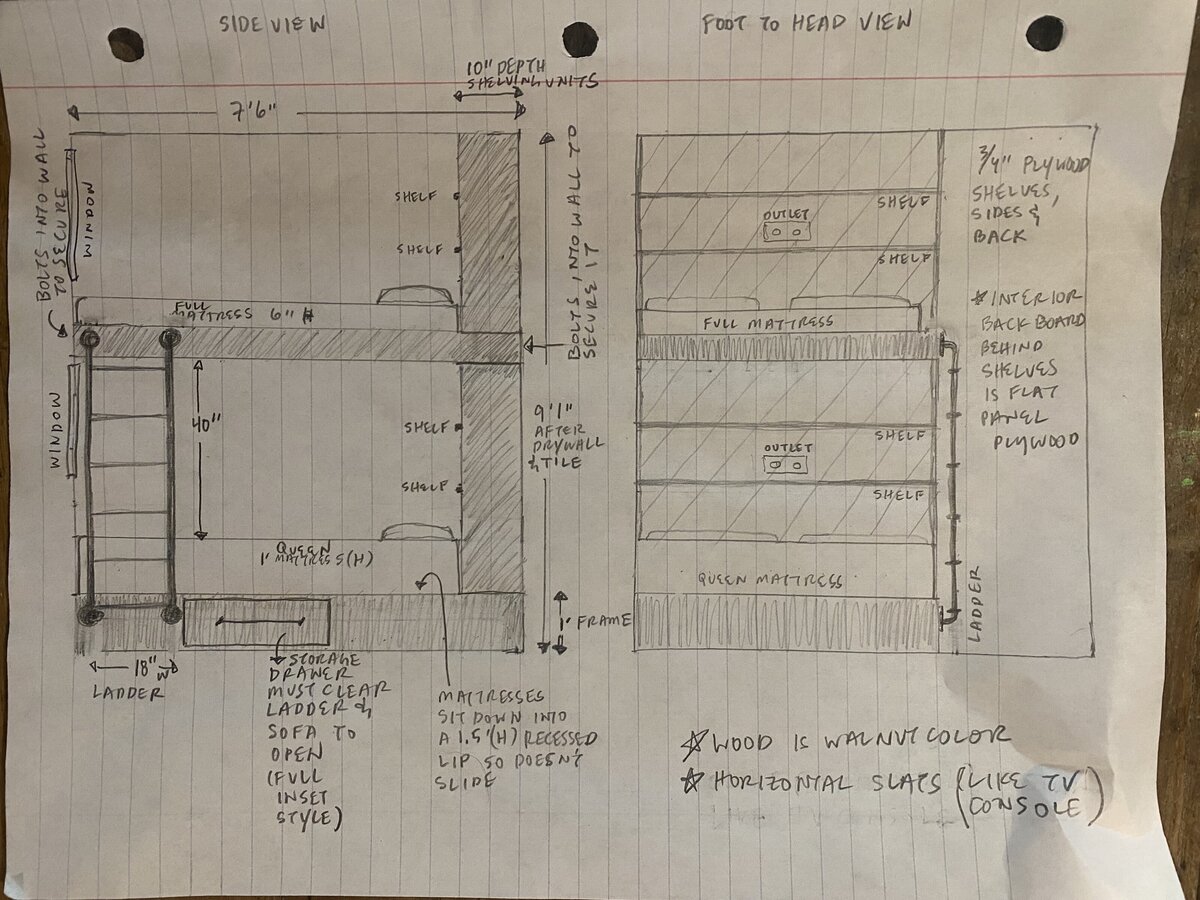 SIDE VIEW
FOOT TO HEAD VIEW
10" DEPTH
SHELVING UNITS
7'6"
BOLTS INTO WALL
TO SECURE
WINDOW
SHELF
SHELF
FULL
MATTRESS 6"
BOLTS INTO WALL TO
SECURE IT
WINDOW
40"
SHELF
SHELF
9'1"
AFTER
DRYWALL
& TILE
QUEEN
1' MATTRESS (H)
1' FRAME
18" W
LADDER
STORAGE
DRAWER
MUST CLEAR
LADDER &
SOFA TO
OPEN
(FULL
INSET
STYLE)
MATTRESSES
SIT DOWN INTO
A 1.5"(H) RECESSED
LIP SO DOESN'T
SLIDE
SHELF
OUTLET
SHELF
FULL MATTRESS
SHELF
OUTLET
SHELF
QUEEN MATTRESS
LADDER
3/4" PLYWOOD
SHELVES,
SIDES &
BACK
* INTERIOR
BACK BOARD
BEHIND
SHELVES
IS FLAT
PANEL
PLYWOOD
☆ WOOD IS WALNUT COLOR
☆ HORIZONTAL SLATS (LIKE TV
CONSOLE)